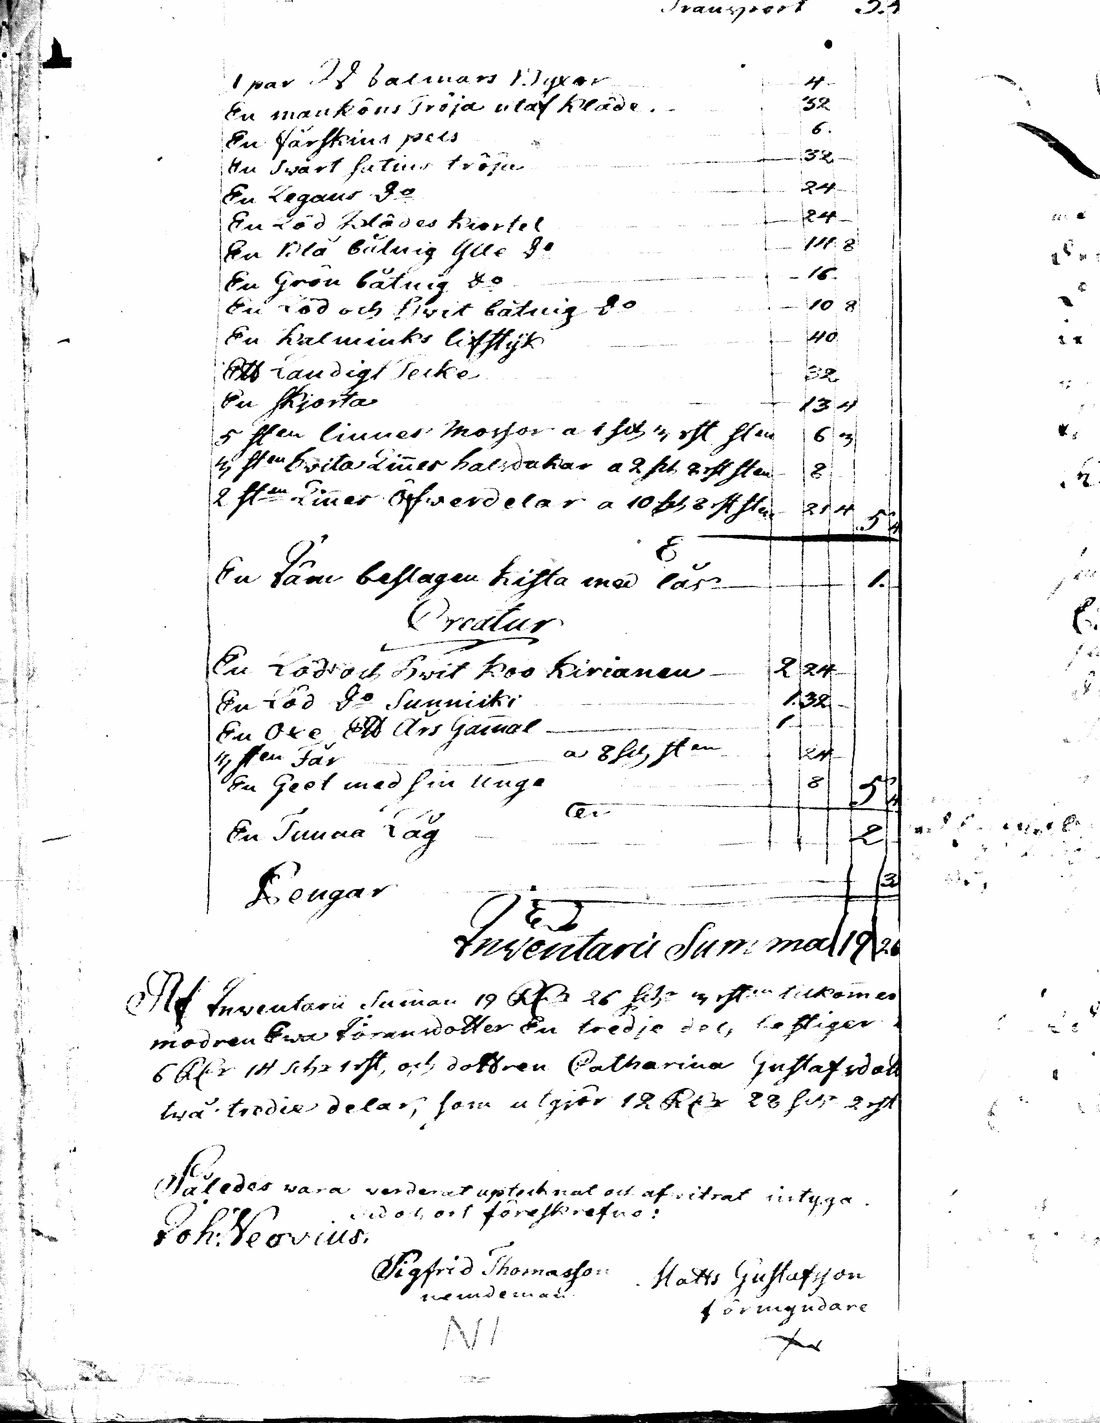 Transport
1 par Dº balmars Byxor 4
En manköns Tröja utaf kläde. 32
En fårskins pels 6
En swart satins tröja 32
En Dº 24
En Röd klädes kiortel 24
En Blå båtnig Ylle Dº 14 8
En Grön båtnig Dº 16
En Röd och hwit båtnig Dº 10 8
En kalminks lifstÿk 40
Ett Randigt Tecke 32
En skjorta 13 4
5 sten linnes Mössor a 1 sch 3 rst sten 6 3
3 sten hwita Linnes halsdukar a 2 sch 8 rst sten 8
2 sten Linnes Öfwerdelar a 10 sch 8 rst sten 21 4 5
En Järn beslagen kista med lås 1
Creatur
En Röd och hwit koo Kirianen 2 24
En Röd Dº Sunnicki 1 32
En Oxe Ett Års Gamal 1
3 sten Får a 8 sch sten 24
En Geet med sin Unge 8 5
En Tunna Råg 2
Pengar 3
Inventarii Summa 19 26
Af Inventarii Summan 19 Rdr 26 sch 3 rst tilkommer
modren Ewa Jöransdotter En tredje del, bestiger
6 Rdr 14 sch 1 rst, och dottren Catharina Gustafsdott
twå tredie delar, som utgiör 12 Rdr 28 sch 2 rst
Således wara verderat uptecknat och afvitrat intyga
och ort föreskrefne:
Joh: Neovius.
Sigfrid Thomasson Matts Gustafsson
nemdeman förmyndare
N1